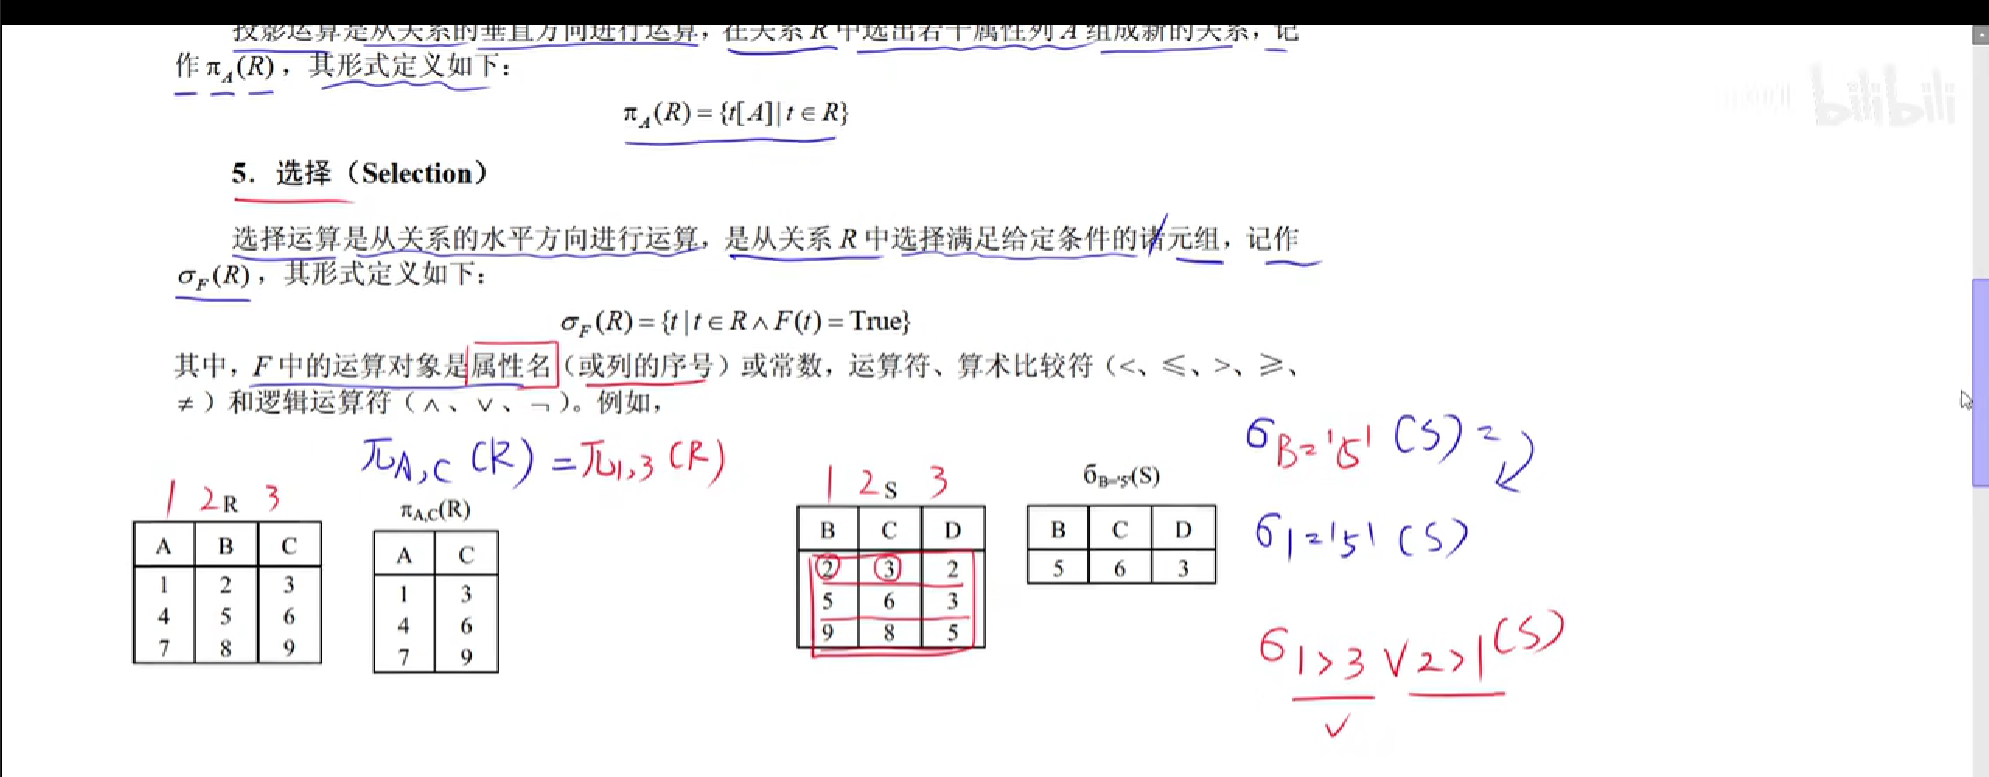 投影运算是从关系的垂直方向进行运算，在关系 R 中选出若干属性列 A 组成新的关系，记
作 π_A(R)，其形式定义如下：
bilibili
π_A(R) = {t[A] | t ∈ R}
5．选择（Selection）
选择运算是从关系的水平方向进行运算，是从关系 R 中选择满足给定条件的诸元组，记作
σ_F(R)，其形式定义如下：
σ_F(R) = {t | t ∈ R ∧ F(t) = True}
其中，F 中的运算对象是属性名（或列的序号）或常数，运算符、算术比较符（<、≤、>、≥、
≠）和逻辑运算符（∧、∨、¬）。例如，
π_A,C (R) = π_1,3 (R)
σ_B='5' (S) =
σ_1='5' (S)
σ_1>3 ∨ 2>1 (S)
1 2 R 3
A B C
1 2 3
4 5 6
7 8 9
π_A,C(R)
A C
1 3
4 6
7 9
1 2 S 3
B C D
2 3 2
5 6 3
9 8 5
σ_B='5'(S)
B C D
5 6 3